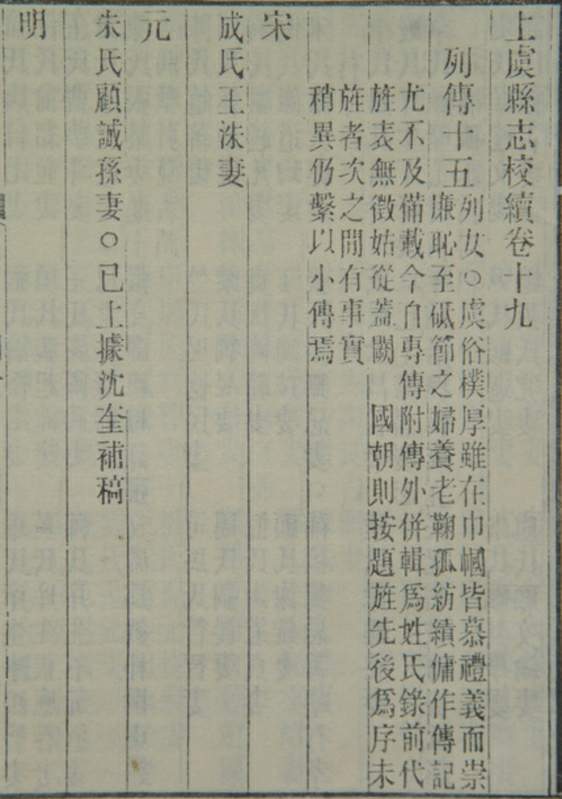 上虞縣志校續卷十九
列傳十五 列女○虞俗樸厚雖在巾幗皆慕禮義而崇
廉恥至砥節之婦養老鞠孤紡績傭作傳記
尤不及備載今自專傳附傳外併輯爲姓氏錄前代
旌表無徵姑從蓋闕 國朝則按題旌先後爲序未
旌者次之間有事實
稍異仍繫以小傳焉
宋
成氏王洙妻
元
朱氏顧誠孫妻○已上據沈奎補稿
明